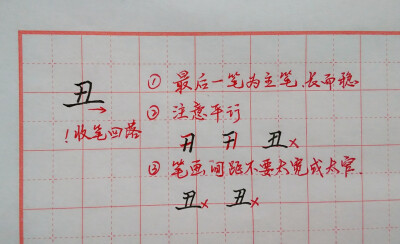 丑
①最后一笔为主笔、长而稳
!收笔回落
②注意平行
丑 丑 丑×
③笔画间距不要太宽或太窄.
丑× 丑×